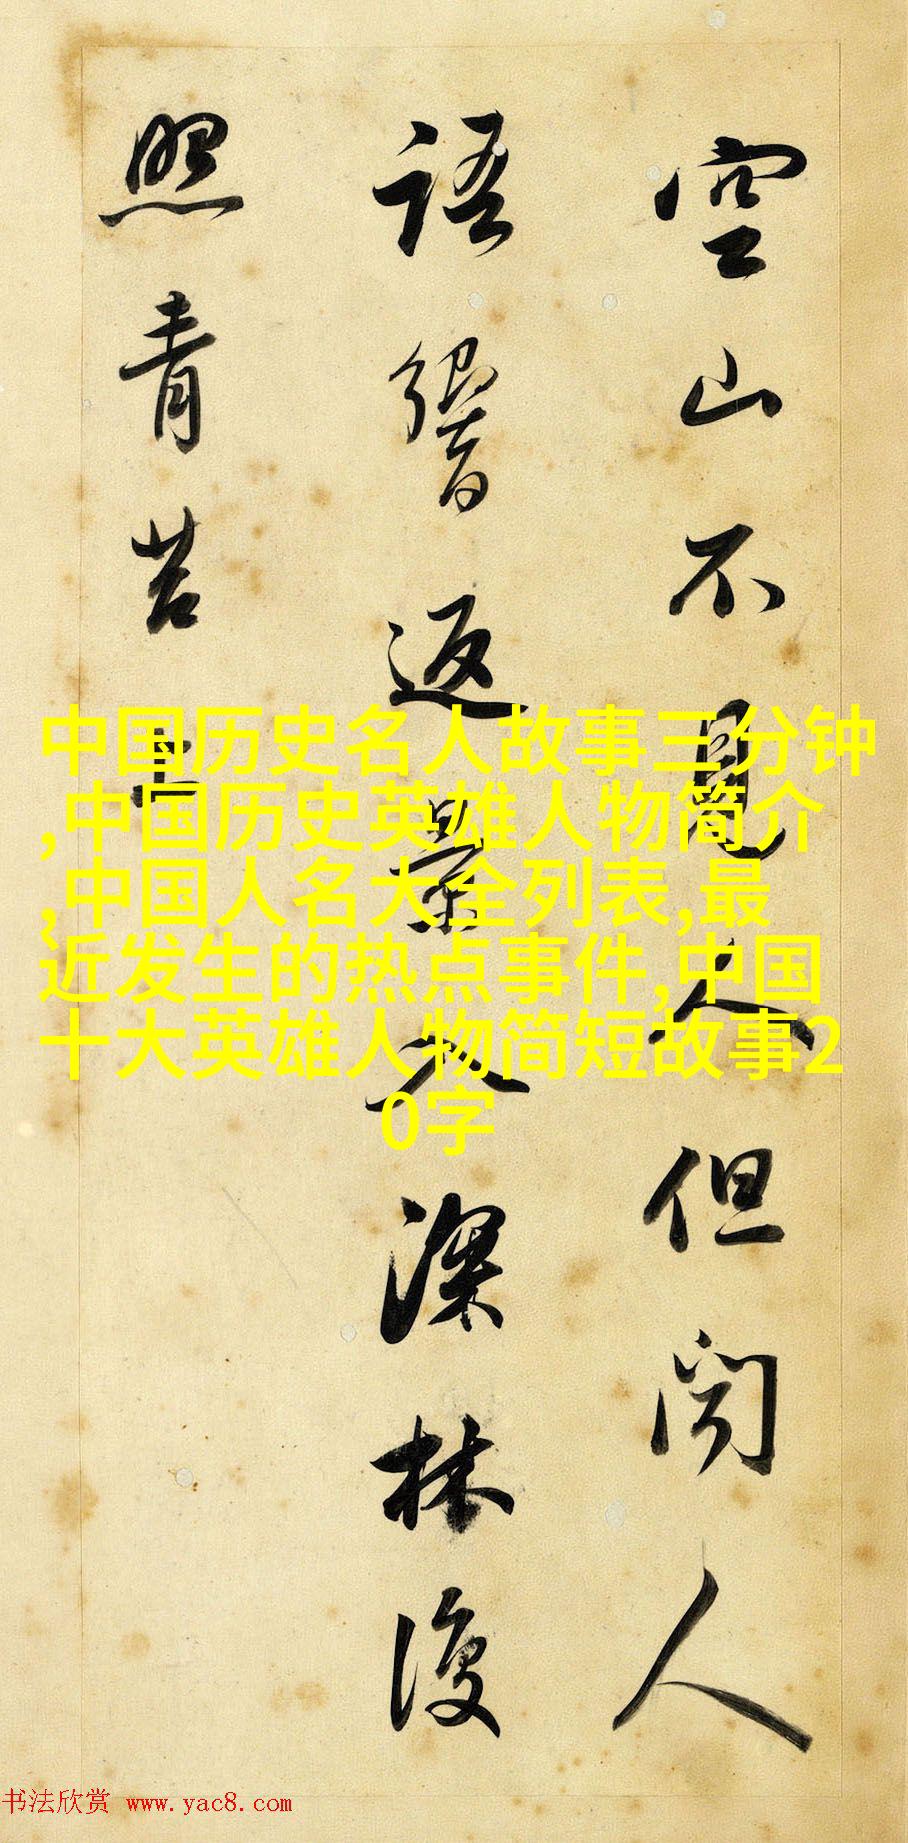 空山不見人但闻人
语響返景入深林復
照青苔上
中国历史名人故事三分钟
,中国历史英雄人物简介
,中国人名大全列表,最
近发生的热点事件,中国
十大英雄人物简短故事2
0字
书法欣赏 www.yac8.com